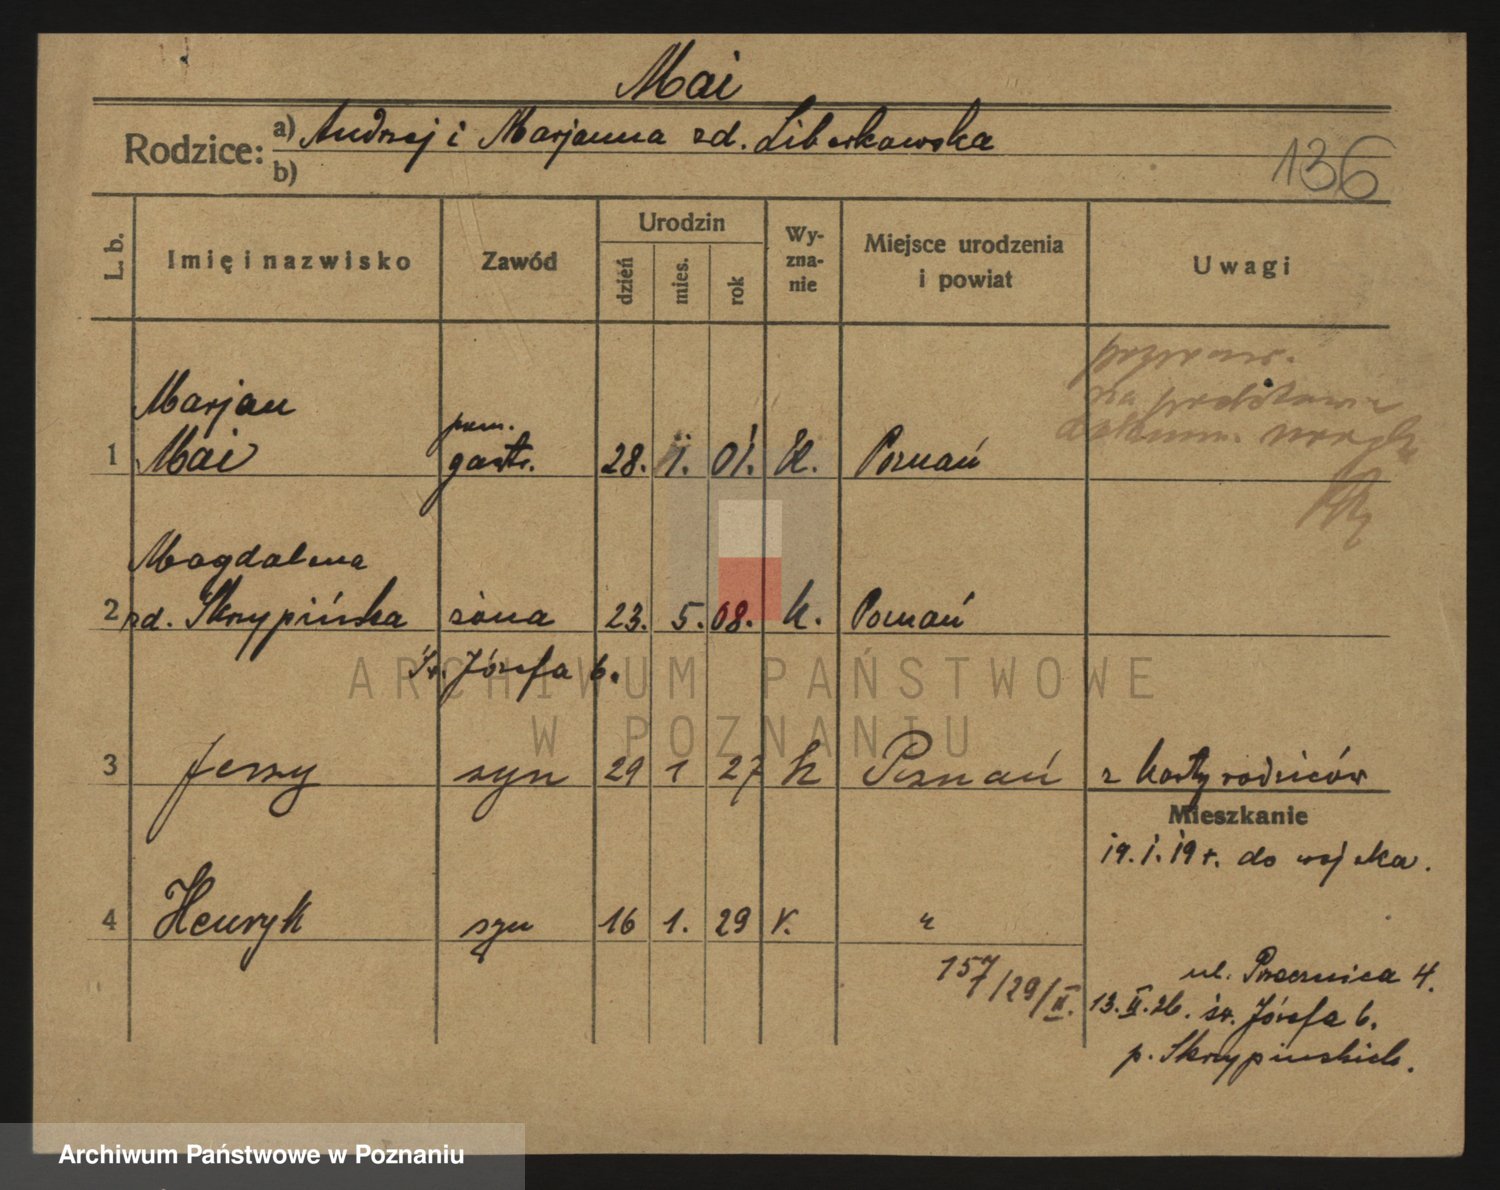 Mai
Rodzice: a) Andrzej i Marjanna zd. Liberkowska
b)
136
L. b. Imię i nazwisko Zawód Urodzin dzień mies. rok Wyznanie Miejsce urodzenia i powiat Uwagi
Marjan pom.
1 Mai gastr. 28. 1. 01. k. Poznań
na podstawie
Magdalena
2 zd. Skrzypińska żona 23. 5. 08. k. Poznań
św. Józefa 6.
3 Jerzy syn 29 1 27 k Poznań z karty rodziców
Mieszkanie
19.I.19 r. do wojska.
4 Henryk syn 16 1. 29 k. "
157/29/II.
ul. Przecznica 4.
13.II.26. św. Józefa 6.
p. Skrzypińskich.
ARCHIWUM PAŃSTWOWE
W POZNANIU
Archiwum Państwowe w Poznaniu